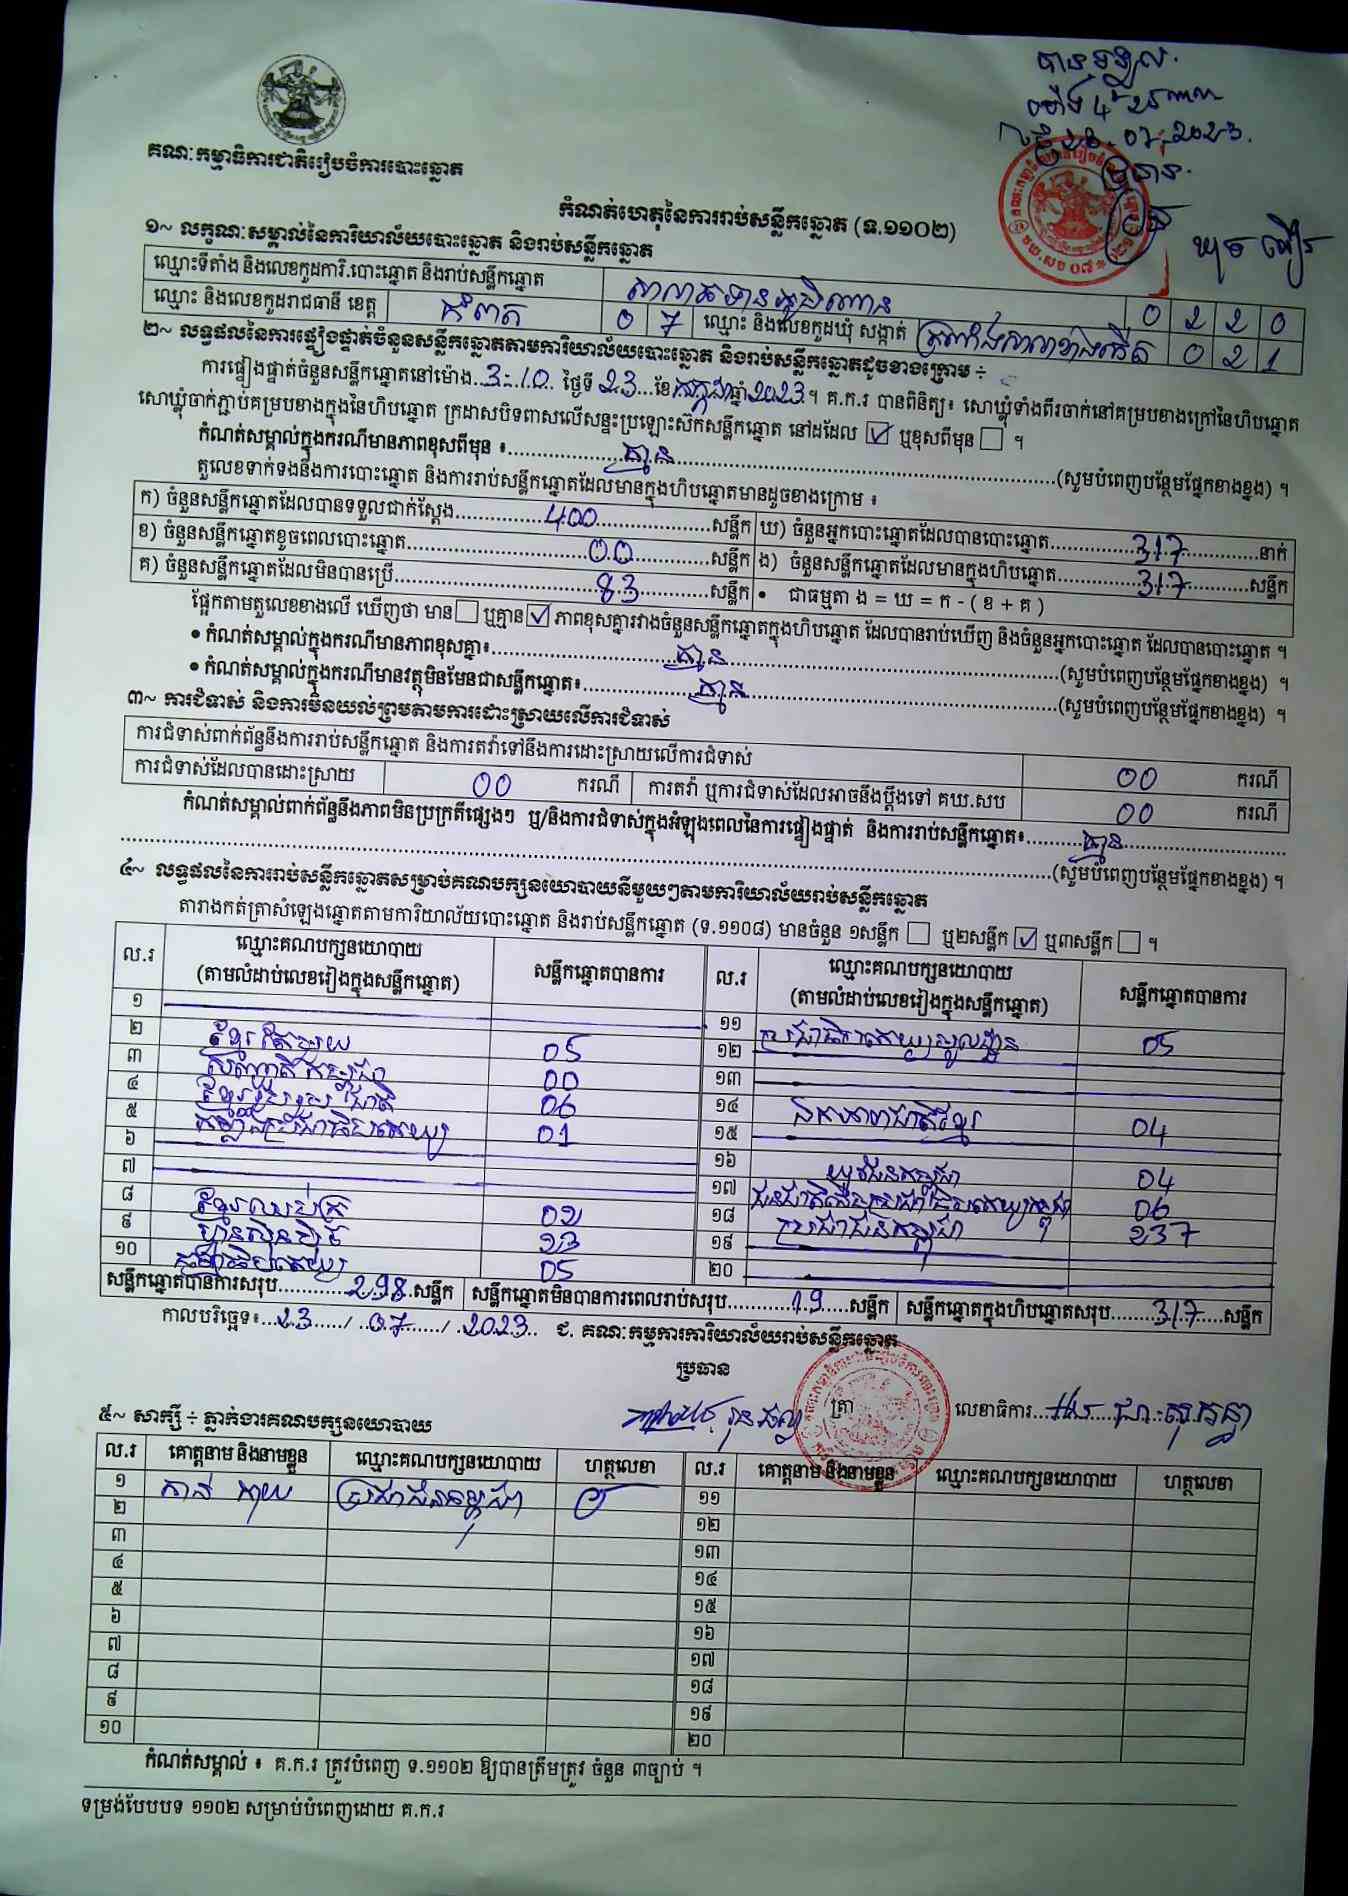 បានទទួល
គណៈកម្មាធិការជាតិរៀបចំការបោះឆ្នោត
កំណត់ហេតុនៃការរាប់សន្លឹកឆ្នោត (ទ.១១០២)
១~ លក្ខណៈសម្គាល់នៃការិយាល័យបោះឆ្នោត និងរាប់សន្លឹកឆ្នោត
ឈ្មោះទីតាំង និងលេខកូដការិ.បោះឆ្នោត និងរាប់សន្លឹកឆ្នោត 0 2 2 0
ឈ្មោះ និងលេខកូដរាជធានី ខេត្ត កំពត 0 7 ឈ្មោះ និងលេខកូដឃុំ សង្កាត់ ត្រពាំងសាលាខាងកើត 0 2 1
២~ លទ្ធផលនៃការផ្ទៀងផ្ទាត់ចំនួនសន្លឹកឆ្នោតតាមការិយាល័យបោះឆ្នោត និងរាប់សន្លឹកឆ្នោតដូចខាងក្រោម ÷
ការផ្ទៀងផ្ទាត់ចំនួនសន្លឹកឆ្នោតនៅម៉ោង 3:10 ថ្ងៃទី 23 ខែ កក្កដា ឆ្នាំ 2023 ។ គ.ក.រ បានពិនិត្យ៖ សោឃ្លុំទាំងពីរចាក់នៅគម្របខាងក្រៅនៃហិបឆ្នោត
សោឃ្លុំចាក់ភ្ជាប់គម្របខាងក្នុងនៃហិបឆ្នោត ក្រដាសបិទពាសលើសន្ទះប្រឡោះស៊កសន្លឹកឆ្នោត នៅដដែល ☑ ឬខុសពីមុន ☐ ។
កំណត់សម្គាល់ក្នុងករណីមានភាពខុសពីមុន ៖ គ្មាន (សូមបំពេញបន្ថែមផ្នែកខាងខ្នង) ។
តួលេខទាក់ទងនឹងការបោះឆ្នោត និងការរាប់សន្លឹកឆ្នោតដែលមានក្នុងហិបឆ្នោតមានដូចខាងក្រោម ៖
ក) ចំនួនសន្លឹកឆ្នោតដែលបានទទួលជាក់ស្តែង 400 សន្លឹក ឃ) ចំនួនអ្នកបោះឆ្នោតដែលបានបោះឆ្នោត 317 នាក់
ខ) ចំនួនសន្លឹកឆ្នោតខូចពេលបោះឆ្នោត 00 សន្លឹក ង) ចំនួនសន្លឹកឆ្នោតដែលមានក្នុងហិបឆ្នោត 317 សន្លឹក
គ) ចំនួនសន្លឹកឆ្នោតដែលមិនបានប្រើ 83 សន្លឹក • ជាធម្មតា ង = ឃ = ក - ( ខ + គ )
ផ្អែកតាមតួលេខខាងលើ ឃើញថា មាន ☐ ឬគ្មាន ☑ ភាពខុសគ្នារវាងចំនួនសន្លឹកឆ្នោតក្នុងហិបឆ្នោត ដែលបានរាប់ឃើញ និងចំនួនអ្នកបោះឆ្នោត ដែលបានបោះឆ្នោត ។
• កំណត់សម្គាល់ក្នុងករណីមានភាពខុសគ្នា៖ គ្មាន (សូមបំពេញបន្ថែមផ្នែកខាងខ្នង) ។
• កំណត់សម្គាល់ក្នុងករណីមានវត្ថុមិនមែនជាសន្លឹកឆ្នោត៖ គ្មាន (សូមបំពេញបន្ថែមផ្នែកខាងខ្នង) ។
៣~ ការជំទាស់ និងការមិនយល់ព្រមតាមការដោះស្រាយលើការជំទាស់
ការជំទាស់ពាក់ព័ន្ធនឹងការរាប់សន្លឹកឆ្នោត និងការតវ៉ាទៅនឹងការដោះស្រាយលើការជំទាស់ 00 ករណី
ការជំទាស់ដែលបានដោះស្រាយ 00 ករណី ការតវ៉ា ឬការជំទាស់ដែលអាចនឹងប្តឹងទៅ គឃ.សប 00 ករណី
កំណត់សម្គាល់ពាក់ព័ន្ធនឹងភាពមិនប្រក្រតីផ្សេងៗ ឬ/និងការជំទាស់ក្នុងអំឡុងពេលនៃការផ្ទៀងផ្ទាត់ និងការរាប់សន្លឹកឆ្នោត៖ គ្មាន
(សូមបំពេញបន្ថែមផ្នែកខាងខ្នង) ។
៤~ លទ្ធផលនៃការរាប់សន្លឹកឆ្នោតសម្រាប់គណបក្សនយោបាយនីមួយៗតាមការិយាល័យរាប់សន្លឹកឆ្នោត
តារាងកត់ត្រាសំឡេងឆ្នោតតាមការិយាល័យបោះឆ្នោត និងរាប់សន្លឹកឆ្នោត (ទ.១១០៨) មានចំនួន ១សន្លឹក ☐ ឬ២សន្លឹក ☑ ឬ៣សន្លឹក ☐ ។
ល.រ ឈ្មោះគណបក្សនយោបាយ (តាមលំដាប់លេខរៀងក្នុងសន្លឹកឆ្នោត) សន្លឹកឆ្នោតបានការ ល.រ ឈ្មោះគណបក្សនយោបាយ (តាមលំដាប់លេខរៀងក្នុងសន្លឹកឆ្នោត) សន្លឹកឆ្នោតបានការ
១ ១១
២ ខ្មែរតែមួយ 05 ១២ 05
៣ 00 ១៣
៤ ខ្មែររួបរួមជាតិ 06 ១៤ ឯកភាពជាតិខ្មែរ 04
៥ កម្លាំងប្រជាធិបតេយ្យ 01 ១៥
៦ ១៦ យុវជនកម្ពុជា 04
៧ ១៧ 06
៨ ខ្មែរឈប់ក្រ 02 ១៨ ប្រជាជនកម្ពុជា 237
៩ ហ៊្វុនស៊ិនប៉ិច 23 ១៩
១០ 05 ២០
សន្លឹកឆ្នោតបានការសរុប 298 សន្លឹក សន្លឹកឆ្នោតមិនបានការពេលរាប់សរុប 19 សន្លឹក សន្លឹកឆ្នោតក្នុងហិបឆ្នោតសរុប 317 សន្លឹក
កាលបរិច្ឆេទ៖ 23 / 07 / 2023 ជ. គណៈកម្មការការិយាល័យរាប់សន្លឹកឆ្នោត
ប្រធាន
ត្រា លេខាធិការ
៥~ សាក្សី ÷ ភ្នាក់ងារគណបក្សនយោបាយ
ល.រ គោត្តនាម និងនាមខ្លួន ឈ្មោះគណបក្សនយោបាយ ហត្ថលេខា ល.រ គោត្តនាម និងនាមខ្លួន ឈ្មោះគណបក្សនយោបាយ ហត្ថលេខា
១ ប្រជាជនកម្ពុជា ១១
២ ១២
៣ ១៣
៤ ១៤
៥ ១៥
៦ ១៦
៧ ១៧
៨ ១៨
៩ ១៩
១០ ២០
កំណត់សម្គាល់ ៖ គ.ក.រ ត្រូវបំពេញ ទ.១១០២ ឱ្យបានត្រឹមត្រូវ ចំនួន ៣ច្បាប់ ។
ទម្រង់បែបបទ ១១០២ សម្រាប់បំពេញដោយ គ.ក.រ